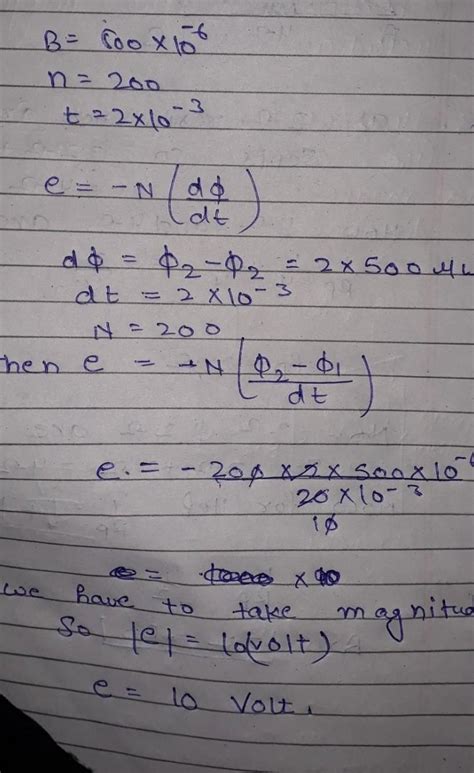 B = 500 × 10⁻⁶
n = 200
t = 2×10⁻³
e = -N (dϕ/dt)
dϕ = Φ₂ - Φ₂ = 2 × 500 μ
dt = 2 × 10⁻³
N = 200
hen e = -N (Φ₂ - Φ₁ / dt)
e. = - 200 × 2 × 500 × 10⁻⁶ / 20 × 10⁻³
10
e = × 10
we have to take magnitud
So |e| = 10(volt)
e = 10 Volt.